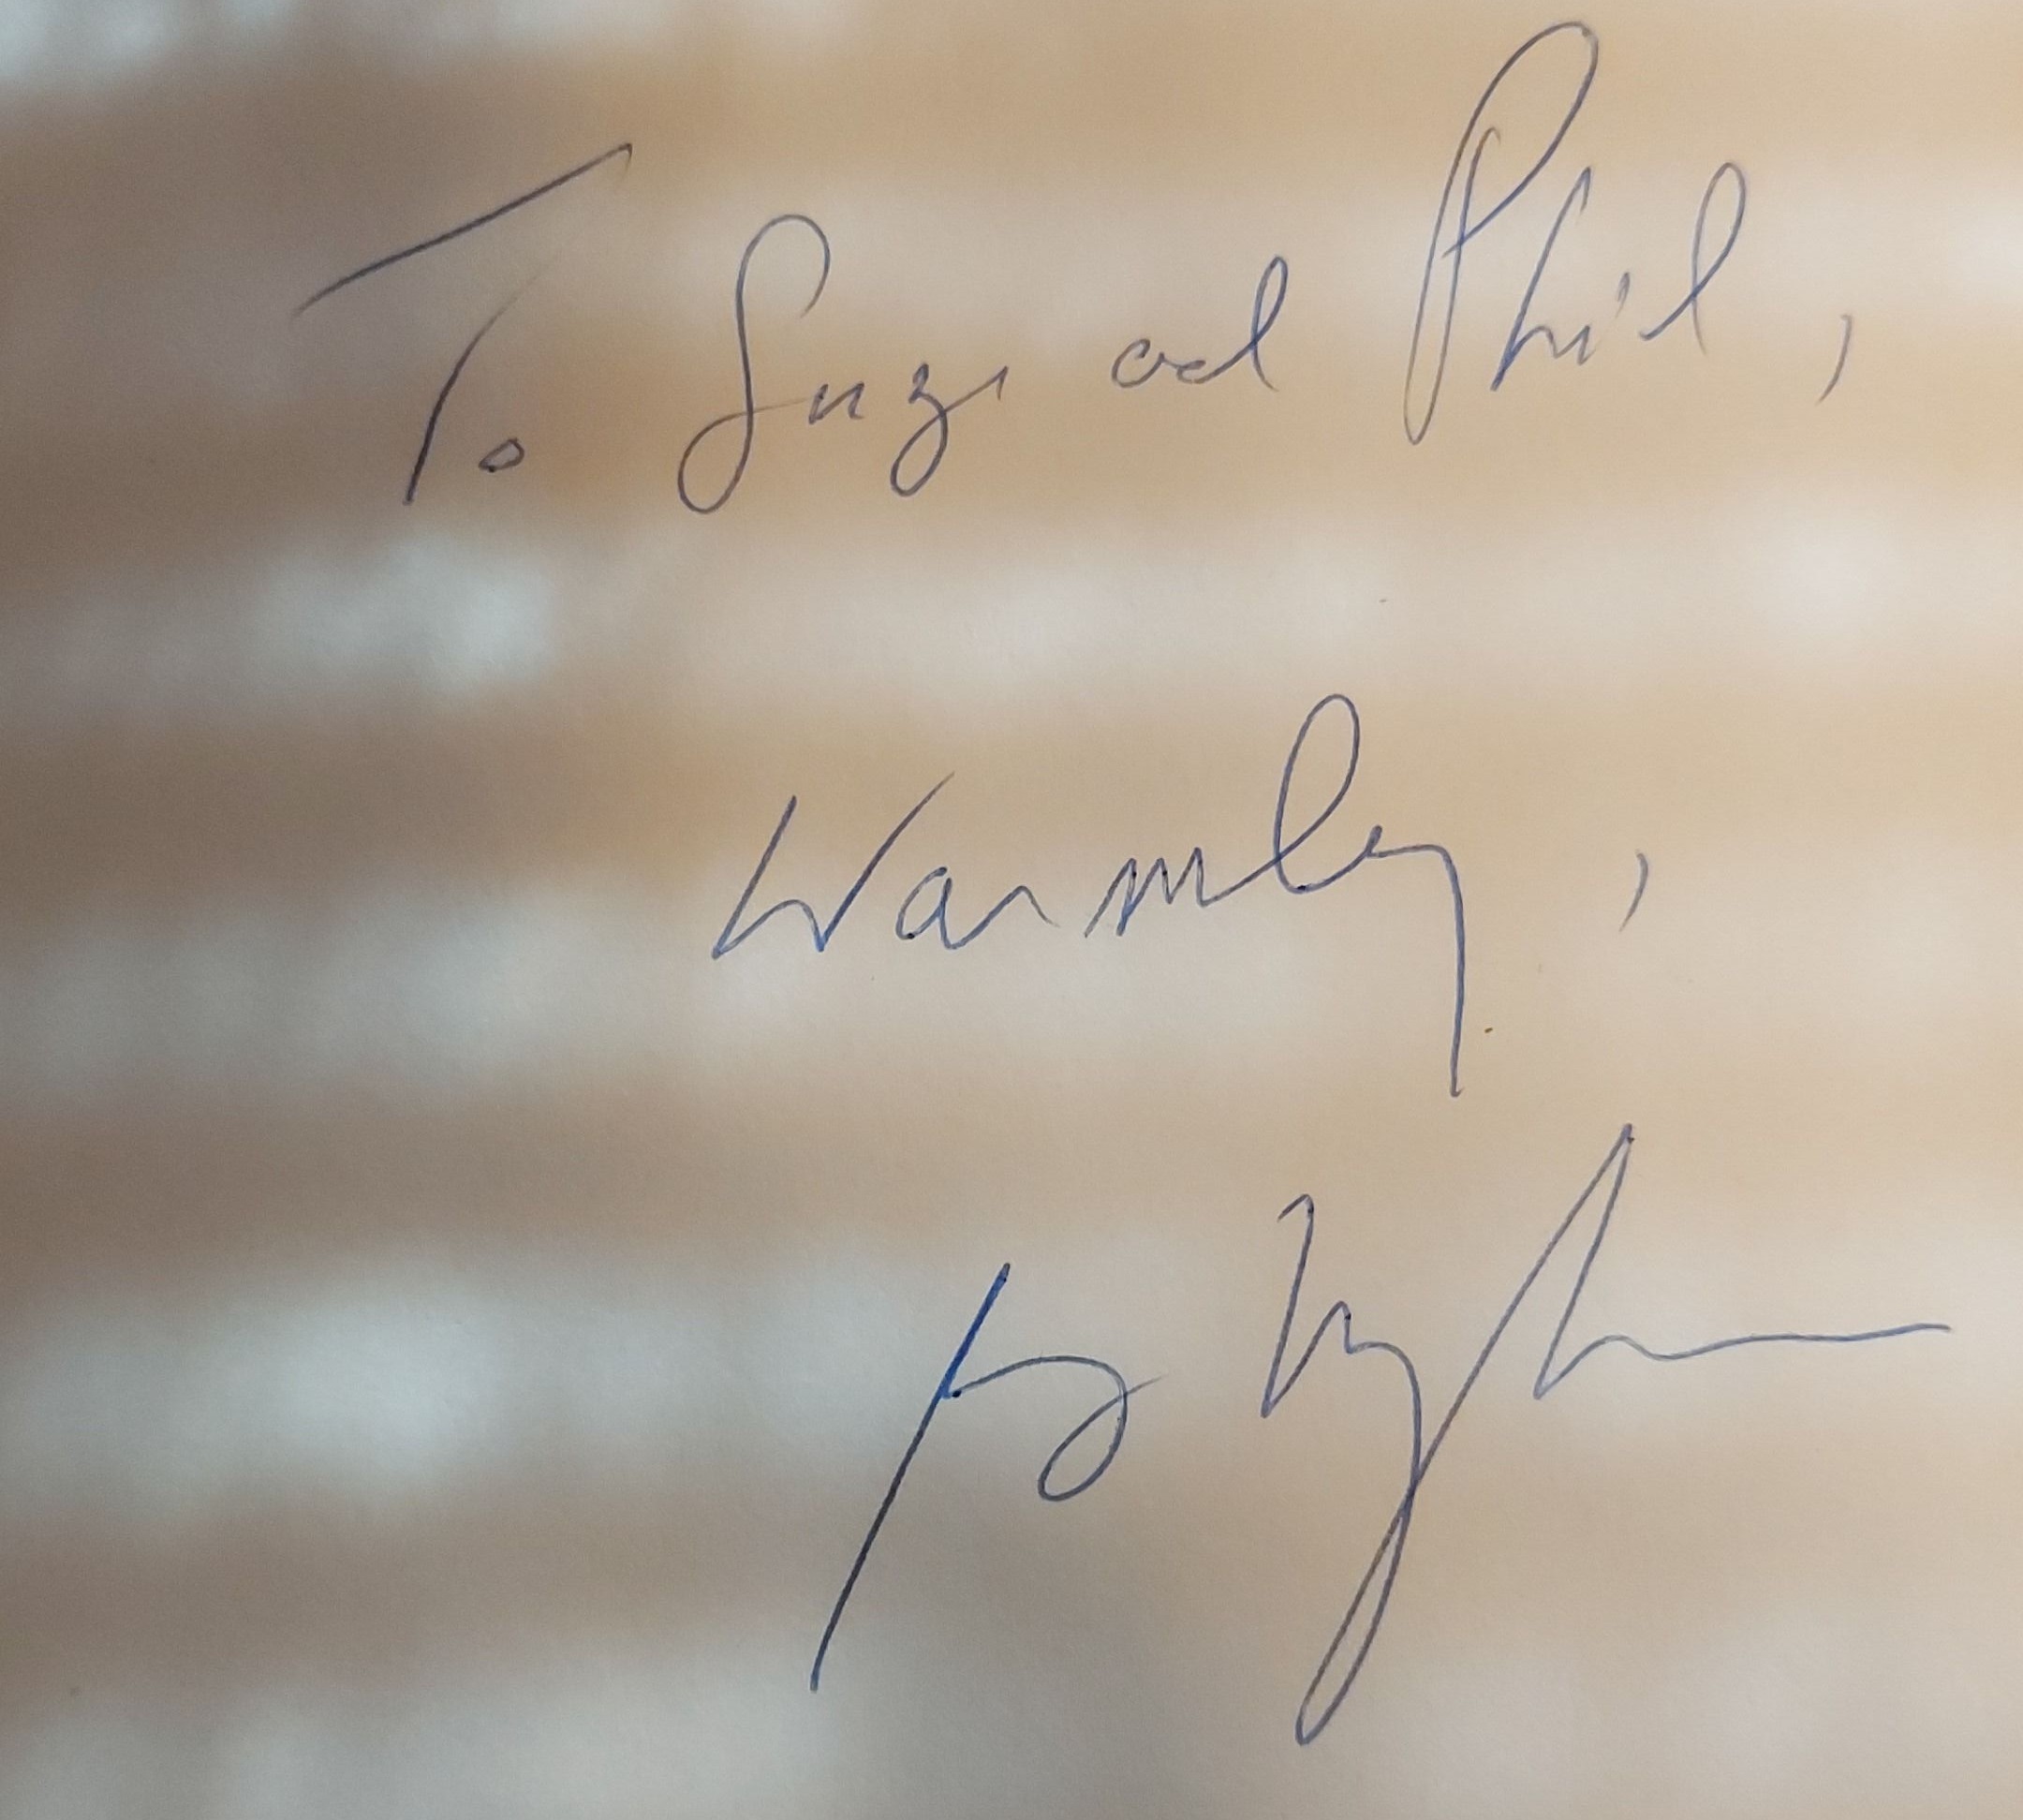 To Suzi and Phil,
Warmly,